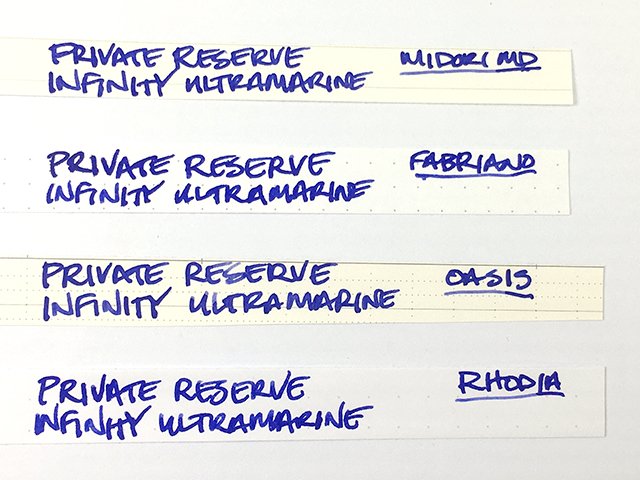 PRIVATE RESERVE MIDORI MD
INFINITY ULTRAMARINE
PRIVATE RESERVE FABRIANO
INFINITY ULTRAMARINE
PRIVATE RESERVE OASIS
INFINITY ULTRAMARINE
PRIVATE RESERVE RHODIA
INFINITY ULTRAMARINE